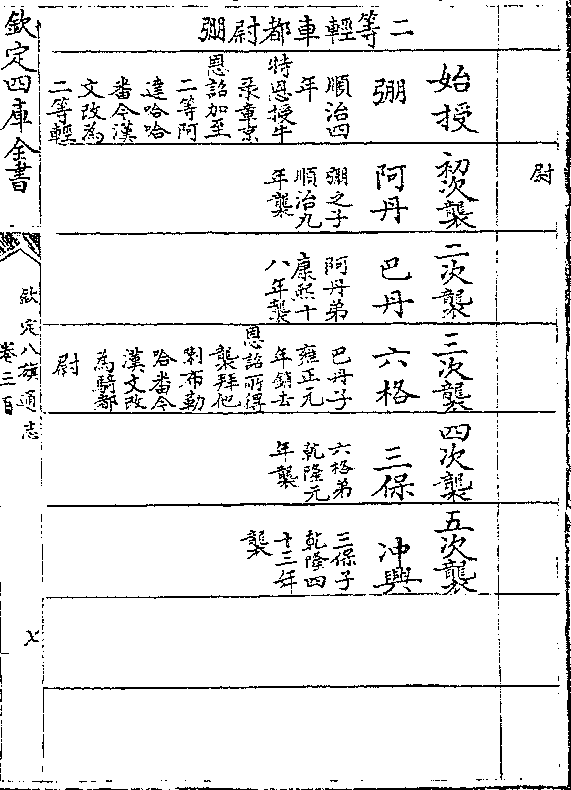 尉
二等輕車都尉弸
始授
弸
順治四
年
特恩授牛
录章京
恩詔加至
二等阿
達哈哈
番今漢
文改為
二等輕
初次襲
阿丹
弸之子
順治九
年襲
二次襲
巴丹
阿丹弟
康熙十
八年襲
三次襲
六格
巴丹子
雍正元
年銷去
恩詔所得
襲拜他
喇布勒
哈番今
漢文改
為騎都
尉
四次襲
三保
六格弟
乾隆元
年襲
五次襲
冲興
三保子
乾隆四
十三年
襲
欽定四庫全書
欽定八旗通志
卷三百